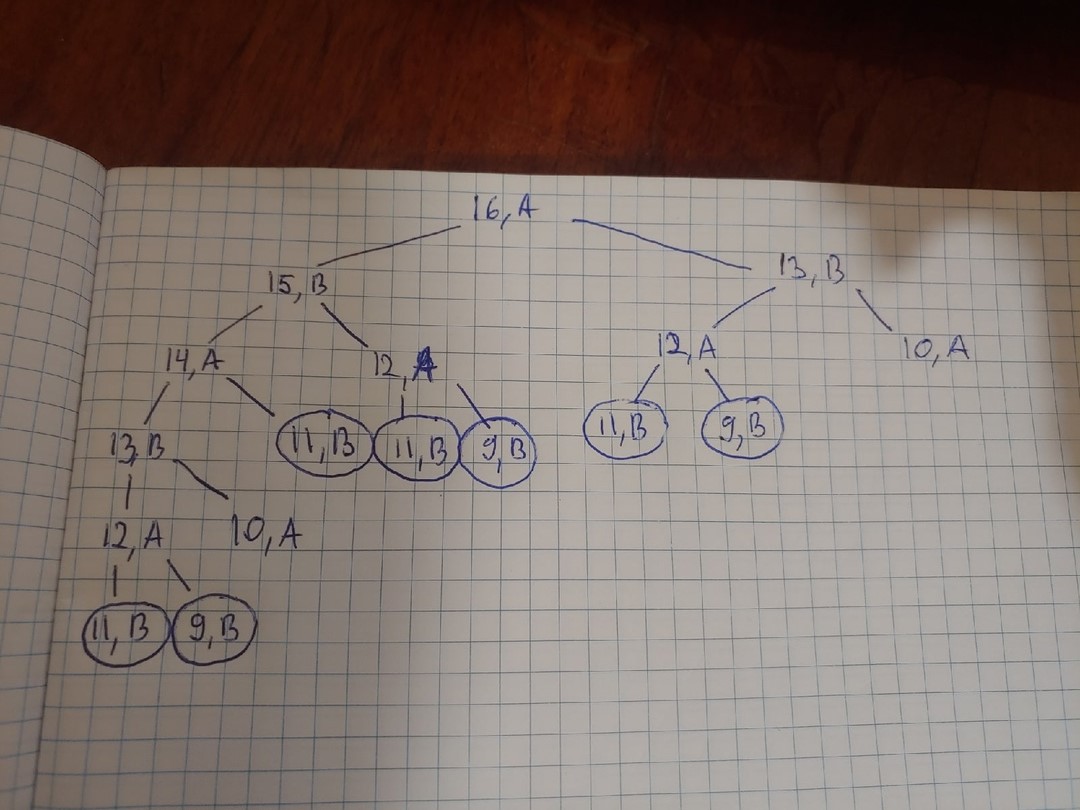 16, A
15, B 13, B
14, A 12, A 12, A 10, A
13, B 11, B 11, B 9, B 11, B 9, B
12, A 10, A
11, B 9, B